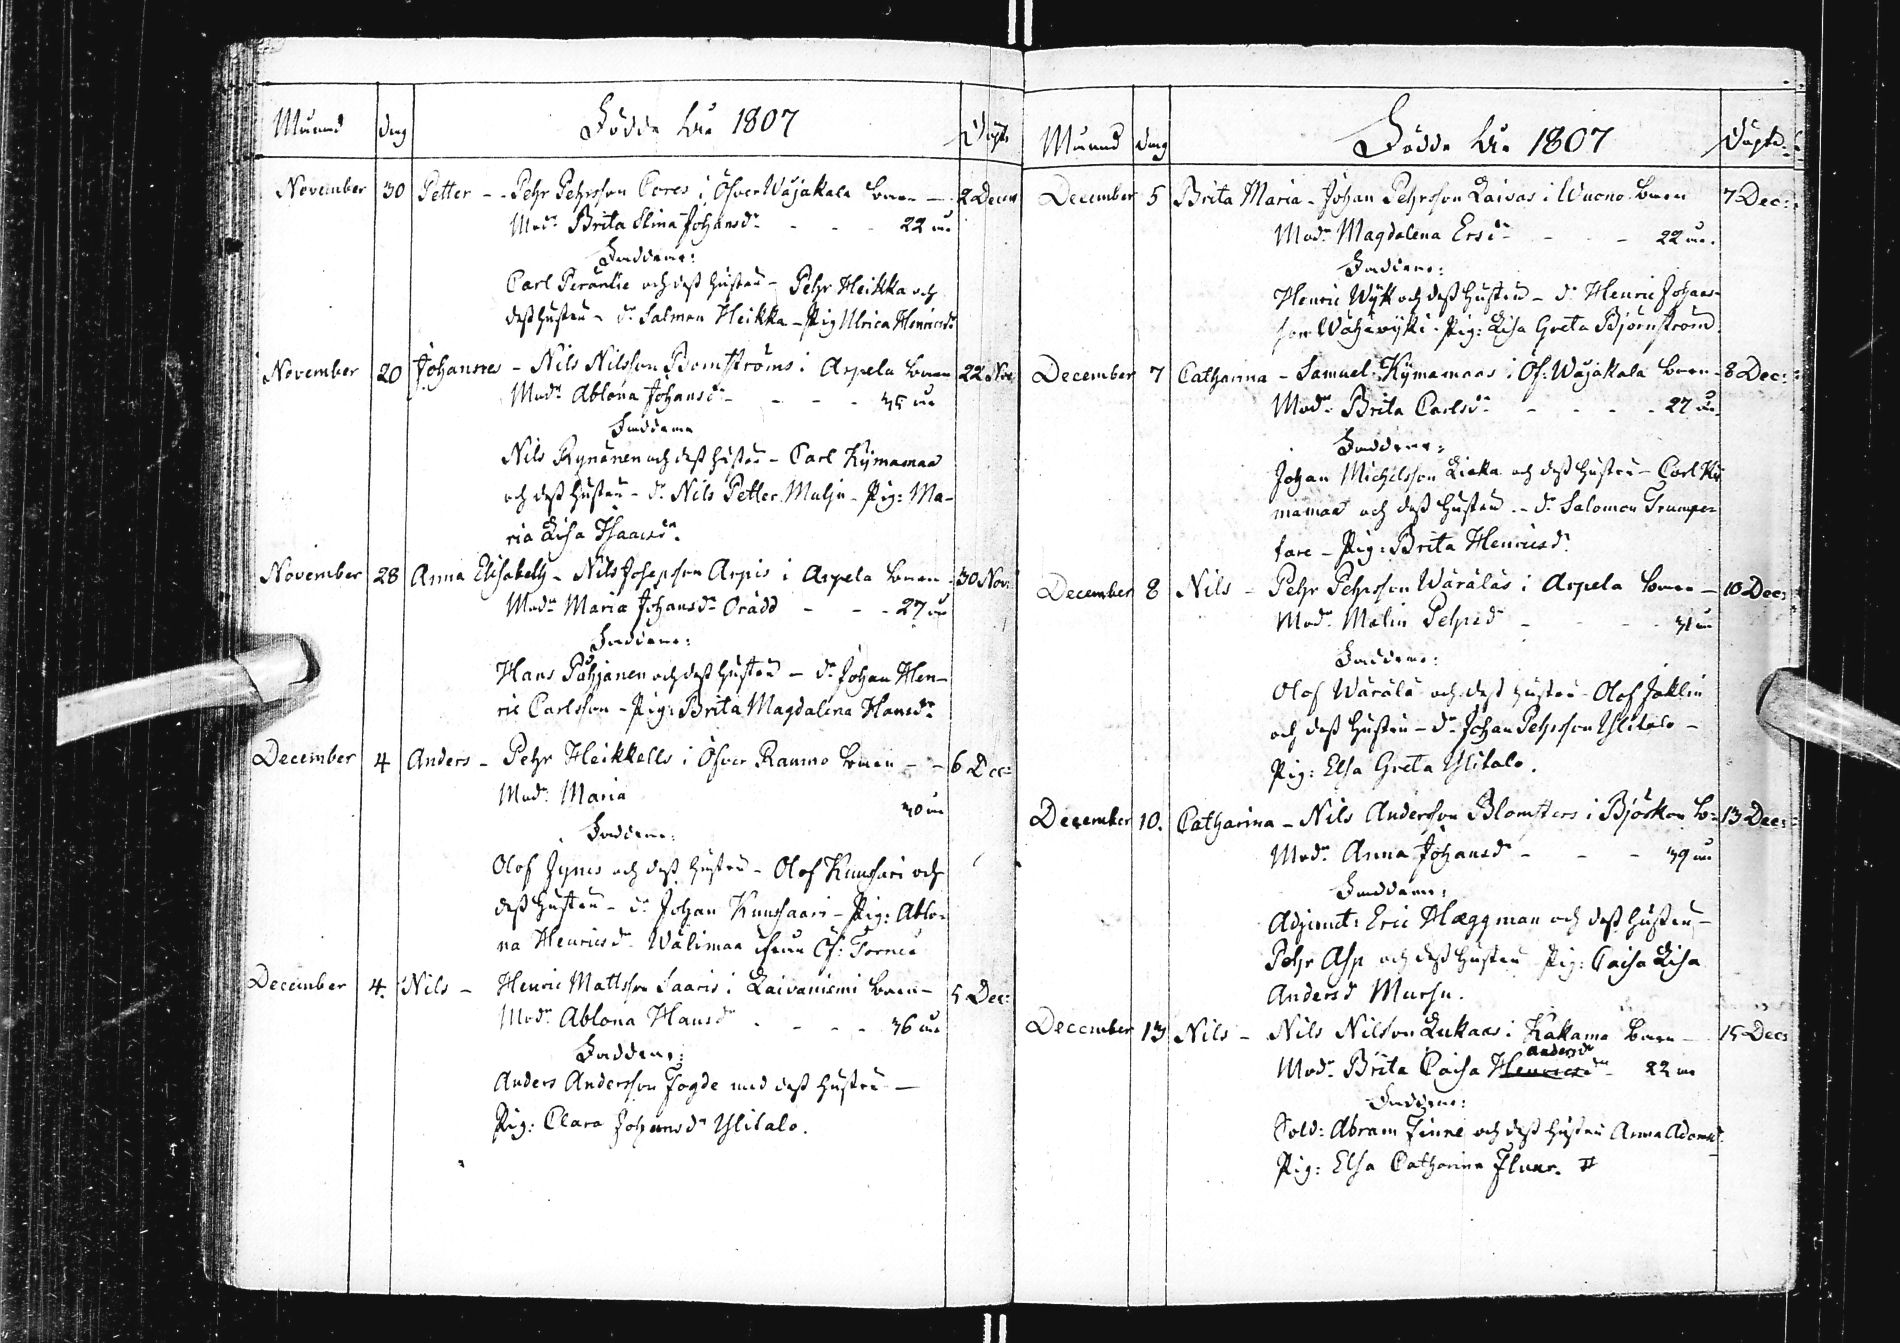 Månad dag Födde År 1807 Döpte
November 30 Petter - - Pehr Pehrsson Cores i Öfver Wåjakala barn - 2 Decem
Modn Brita Stina Johansdr - - - 22 år
Faddrene:
Carl Peräntie och dess hustru - Pehr Heikka och
dess hustru - dr Salmon Heikka - Pig Ulrica Henricsdr
November 20 Johannes - Nils Nilsson Bomströms i Arpela barn 22 Nov
Modn Ablona Johansdr - - - - 35 år
Faddrene
Nils Rynänen och dess hustru - Carl Kymamaa
och dess hustru - dr Nils Petter Malju - Pig: Ma-
ria Lisa Isaacsdr.
November 28 Anna Elisabeth - Nils Josepsson Arpis i Arpela barn - 30 Nov:
Modn Maria Johansdr Orädd - - - 27 år
Faddrene:
Hans Pohjanen och dess hustru - dr Johan Hen-
ric Carlsson - Pig: Brita Magdalena Hansdr
December 4 Anders - Pehr Heikkells i Öfver Raumo barn - - 6 Dec:
Modr Maria 30 år
Faddrene:
Olof Jynes och dess hustru - Olof Kuusari och
dess hustru - dr Johan Kuusaari - Pig: Ablo-
na Henricsd. Wälimaa ifrån Öf: Torneå
December 4. Nils - Henric Mattsson Saaris i Laivaniemi barn - 5 Dec:
Modr Ablona Hansdr - - - - 36 år
Faddrene:
Anders Andersson Fogde med dess hustru -
Pig: Clara Johansdr Ylitalo.
Månad dag Födde År 1807 Döpte
December 5 Brita Maria - Johan Pehrsson Laivas i Wuono barn 7 Dec:
Modr Magdalena Ersdr - - - 22 år.
Faddrene:
Henric Wyk och dess hustru - dr Henric Johans-
son Wähäwyki - Pig: Lisa Greta Björnström
December 7 Catharina - Samuel Kymamaas i Öf: Wåjakala barn - 8 Dec:
Modr Brita Carlsdr - - - - 27 år
Faddrene:
Johan Michelsson Liaka och dess hustru - Carl Ky
mamaa och dess hustru - dr Salomon Trumpen
fare - Pig: Brita Henricsdr
December 8 Nils - Pehr Pehrsson Wäräläs i Arpela barn - 10 Dec:
Modr Malin Pehrsdr - - - - 31 år
Faddrene:
Olof Wärälä och dess hustru - Olof Jaklin
och dess hustru - dr Johan Pehrsson Ylitalo -
Pig: Elsa Greta Ylitalo.
December 10. Catharina - Nils Andersson Blomsters i Björkön b: 13 Dec:
Modr Anna Johansdr - - - 39 år
Faddrene:
Adjunct: Eric Hæggman och dess hustru -
Pehr Asp och dess hustru Pig: Caisa Lisa
Andersd Mursu.
December 13 Nils - Nils Nilsson Lukaas i Kakamo barn - 15 Dec:
Andersdr
Modr Brita Caisa Henricsdr - 22 år
Faddrene:
Sold: Abram Finne och dess hustru Anna Adamsdr
Pig: Elsa Catharina Fluur. #